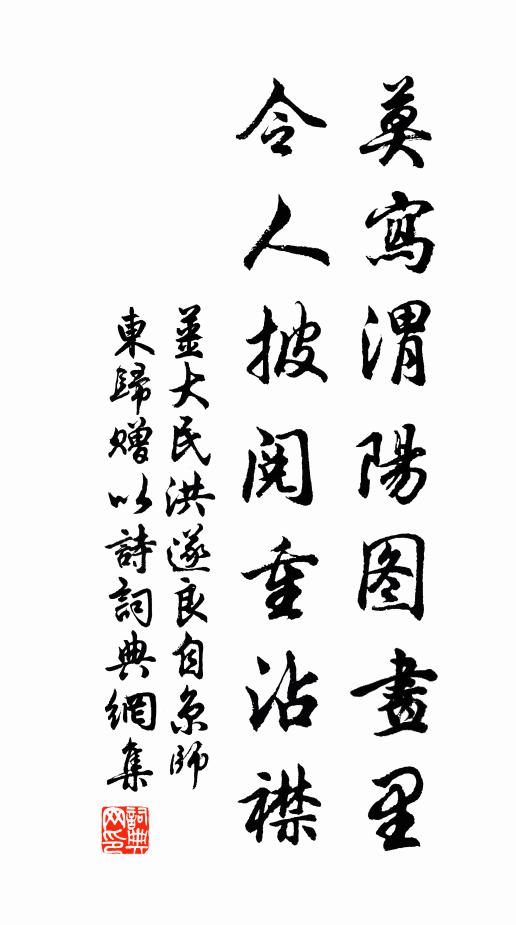 莫寫渭陽图畫里
令人披閱重沾襟
薑大民洪遂良自京師
東歸赠以詩詞典網集
詞典网印